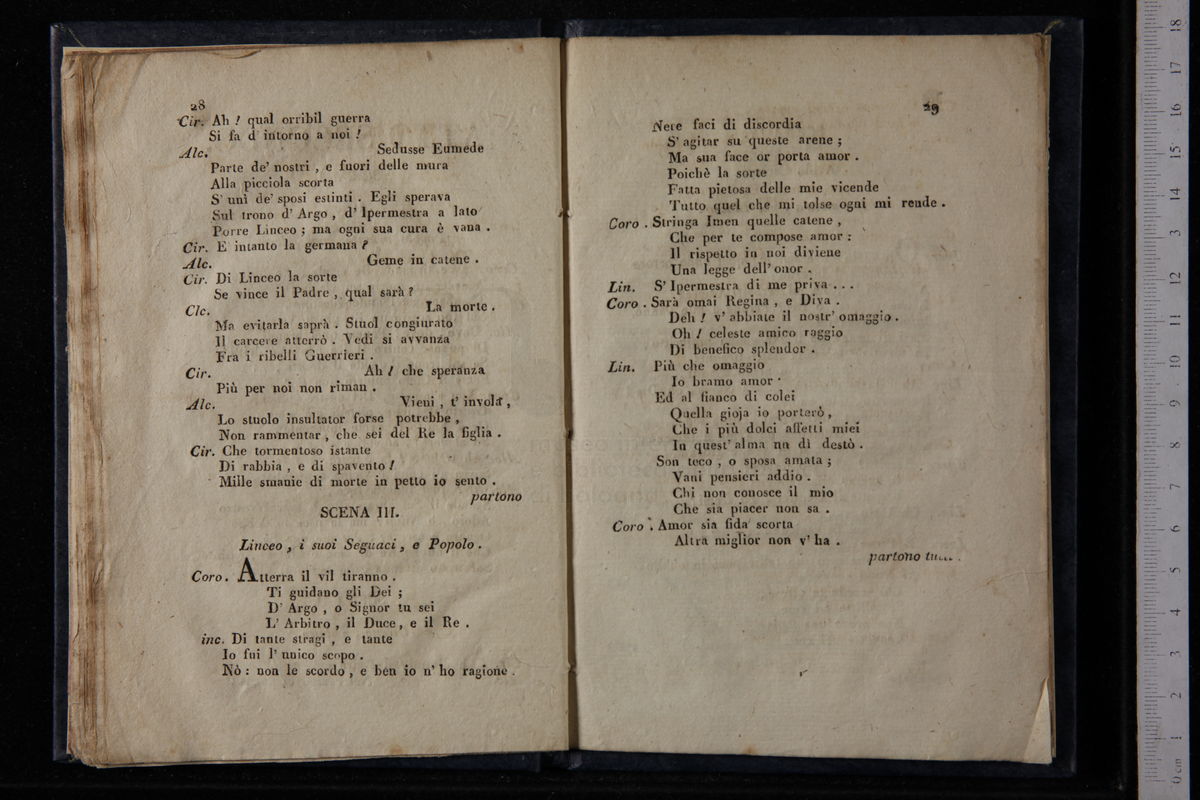 28
Cir. Ah ! qual orribil guerra
Si fa d' intorno a noi !
Alc. Sedusse Eumede
Parte de' nostri , e fuori delle mura
Alla picciola scorta
S' unì de' sposi estinti . Egli sperava
Sul trono d' Argo , d' Ipermestra a lato
Porre Linceo ; ma ogni sua cura è vana .
Cir. E intanto la germana ?
Alc. Geme in catene .
Cir. Di Linceo la sorte
Se vince il Padre , qual sarà ?
Clc. La morte .
Ma evitarla saprà . Stuol congiurato
Il carcere atterrò . Vedi si avvanza
Fra i ribelli Guerrieri .
Cir. Ah ! che speranza
Più per noi non riman .
Alc. Vieni , t' invola ,
Lo stuolo insultator forse potrebbe ,
Non rammentar , che sei del Re la figlia .
Cir. Che tormentoso istante
Di rabbia , e di spavento !
Mille smanie di morte in petto io sento .
partono
SCENA III.
Linceo , i suoi Seguaci , e Popolo .
Coro . Atterra il vil tiranno .
Ti guidano gli Dei ;
D' Argo , o Signor tu sei
L' Arbitro , il Duce , e il Re .
inc. Di tante stragi , e tante
Io fui l' unico scopo .
Nò : non le scordo , e ben io n' ho ragione .
29
Nere faci di discordia
S' agitar su queste arene ;
Ma sua face or porta amor .
Poichè la sorte
Fatta pietosa delle mie vicende
Tutto quel che mi tolse ogni mi rende .
Coro . Stringa Imen quelle catene ,
Che per te compose amor :
Il rispetto in noi diviene
Una legge dell' onor .
Lin. S' Ipermestra di me priva . . .
Coro . Sarà omai Regina , e Diva .
Deh ! v' abbiate il nostr' omaggio .
Oh ! celeste amico raggio
Di benefico splendor .
Lin. Più che omaggio
Io bramo amor .
Ed al fianco di colei
Quella gioja io porterò ,
Che i più dolci affetti miei
In quest' alma un dì destò .
Son teco , o sposa amata ;
Vani pensieri addio .
Chi non conosce il mio
Che sia piacer non sa .
Coro . Amor sia fida scorta
Altra miglior non v' ha .
partono
0 cm 1 2 3 4 5 6 7 8 9 10 11 12 13 14 15 16 17 18